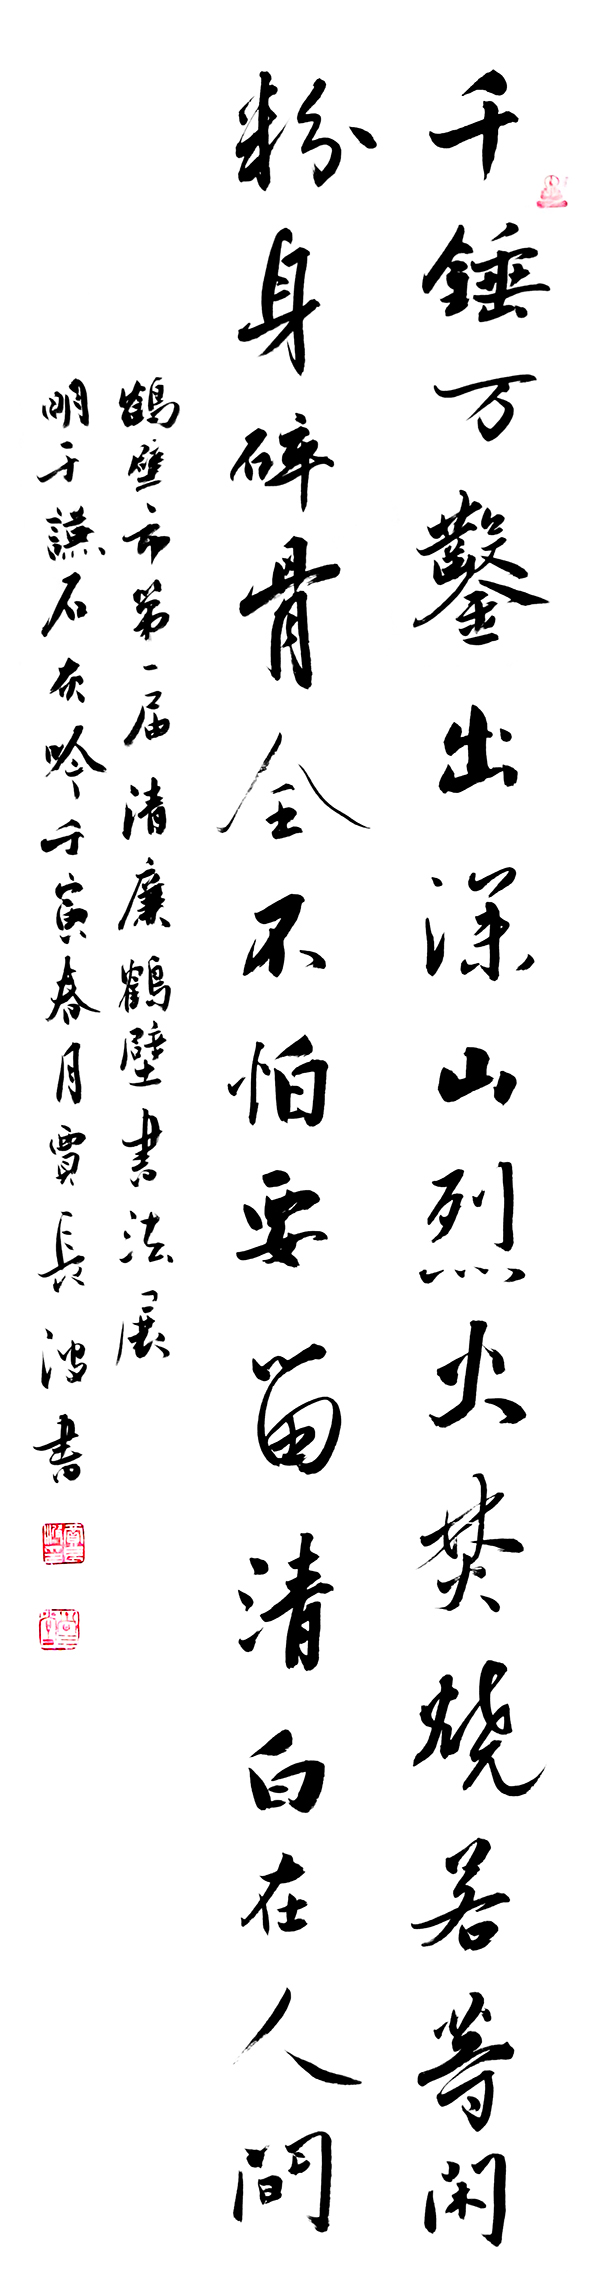 千錘万鑿出深山烈火焚燒若等閑
粉身碎骨全不怕要留清白在人間
鶴壁市第一届清廉鶴壁書法展
明于謙石灰吟壬寅春月賈長波書